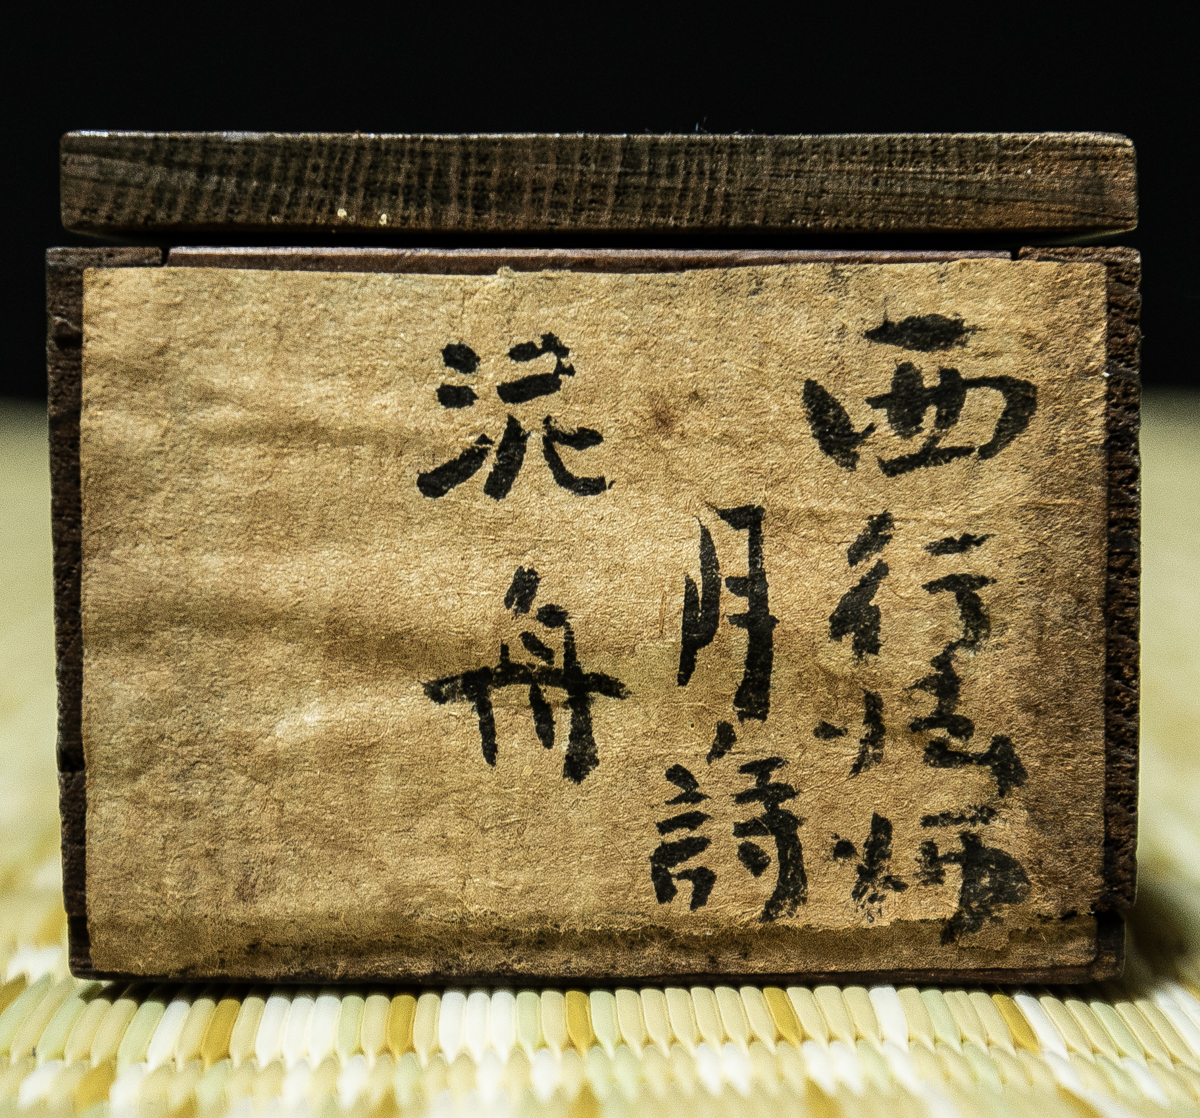 西行法師
月詩
泥舟